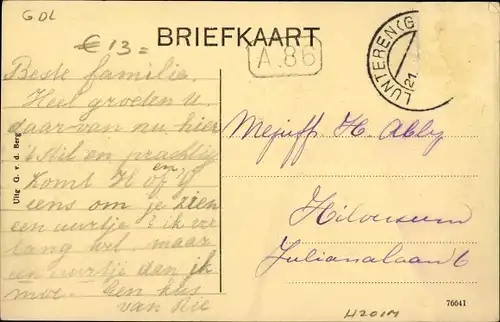 GDL
€ 13=
BRIEFKAART
A.86
LUNTEREN (G
21
Beste familie.
Heel groeten u
daar van nu hier
't stil en prachtig
Komt H of en G
eens om je zien
een uurtje? ik ver
lang wel, maar
een uurtje dan ik
moe. Een kus
van Rie
Mejuffr H. Abbq
Hilversum
Julianalaan 6
Uitg G. v. d. Berg
76641
H201M